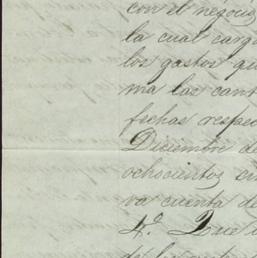 con el negocio
la cual carg
los gastos qu
ma las cant
fechas respec
Diciembre de
ochocientos cin
va cuenta de
4º. Que